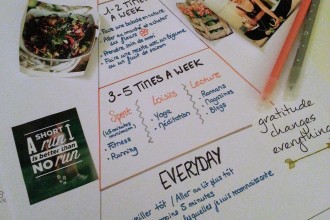 1-2 TIMES
A WEEK
- Faire une balade en nature
- Aller au marché et acheter
des fleurs
- Prendre soin de moi
- Faire une recette avec un légume
ou un fruit de saison
3-5 TIMES A WEEK
Sport
(45 minutes
minimum)
- Fitness
- Running
Loisirs
- Yoga
- Méditation
Lecture
- Romans
- Magazines
- Blogs
A SHORT
RUN
is better than
NO RUN
gratitude
changes
everything
EVERYDAY
tôt / Aller au lit plus tôt
5 minutes
lesquelles je suis reconnaissante